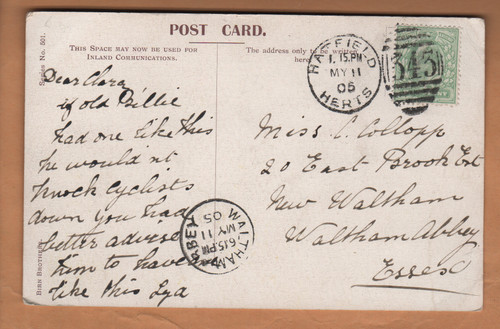 POST CARD.
THIS SPACE MAY NOW BE USED FOR
INLAND COMMUNICATIONS.
The address only to be written
here
Series No. 501.
BIRN BROTHERS
HATFIELD
1.15.PM
MY 11
05
HERTS
343
Dear Clara
if old Billie
had one like this
he would nt
knock cyclists
down you had
better advise
him to have one
like this Lya
Miss C. Collopp
20 East Brook Ext
New Waltham
Waltham Abbey
Essex
WALTHAM
6.15.PM
MY 11
05
ABBEY